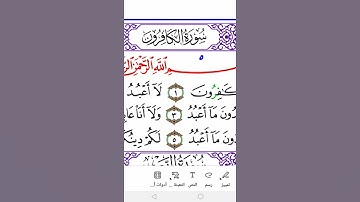 سُورَةُ الكَافِرُونَ
ـمِ اللَّهِ الرَّحْمَٰنِ
كَٰفِرُونَ ١ لَآ أَعْبُدُ
ـدُونَ مَآ أَعْبُدُ ٣ وَلَآ أَنَا۠ عَا
ـدُونَ مَآ أَعْبُدُ ٥ لَكُمْ دِينُكُـ
تمييز رسم النص التعبئة ... أدوات أ...